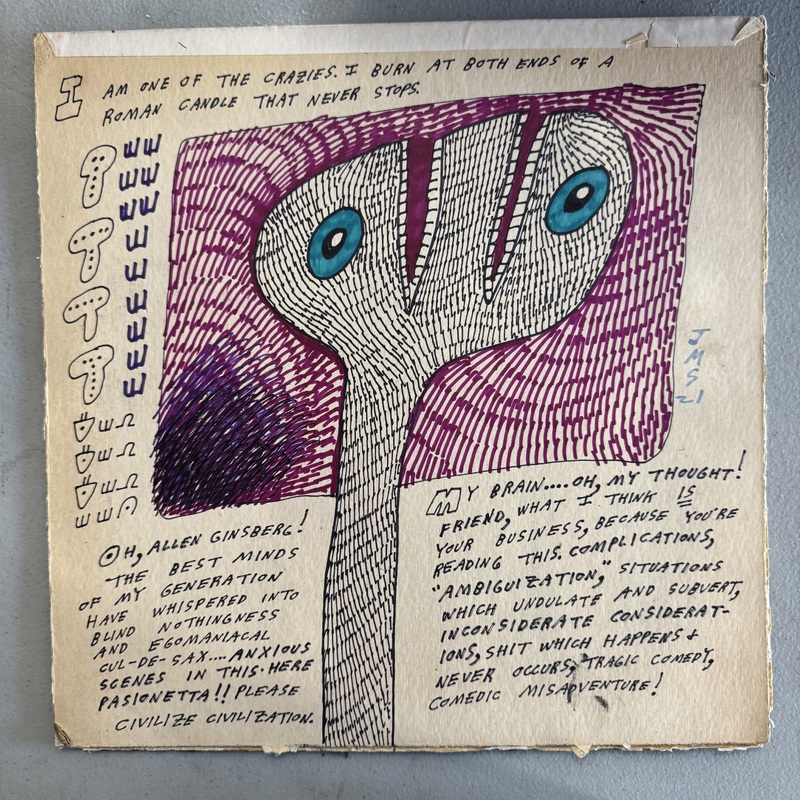 I AM ONE OF THE CRAZIES. I BURN AT BOTH ENDS OF A
ROMAN CANDLE THAT NEVER STOPS.
JMS
21
OH, ALLEN GINSBERG!
THE BEST MINDS
OF MY GENERATION
HAVE WHISPERED INTO
BLIND NOTHINGNESS
AND EGOMANIACAL
CUL-DE-SAX.... ANXIOUS
SCENES IN THIS HERE
PASIONETTA!! PLEASE
CIVILIZE CIVILIZATION.
MY BRAIN.... OH, MY THOUGHT!
FRIEND, WHAT I THINK IS
YOUR BUSINESS, BECAUSE YOU'RE
READING THIS. COMPLICATIONS,
"AMBIGUIZATION," SITUATIONS
WHICH UNDULATE AND SUBVERT,
INCONSIDERATE CONSIDERAT-
IONS, SHIT WHICH HAPPENS &
NEVER OCCURS, TRAGIC COMEDY,
COMEDIC MISADVENTURE!